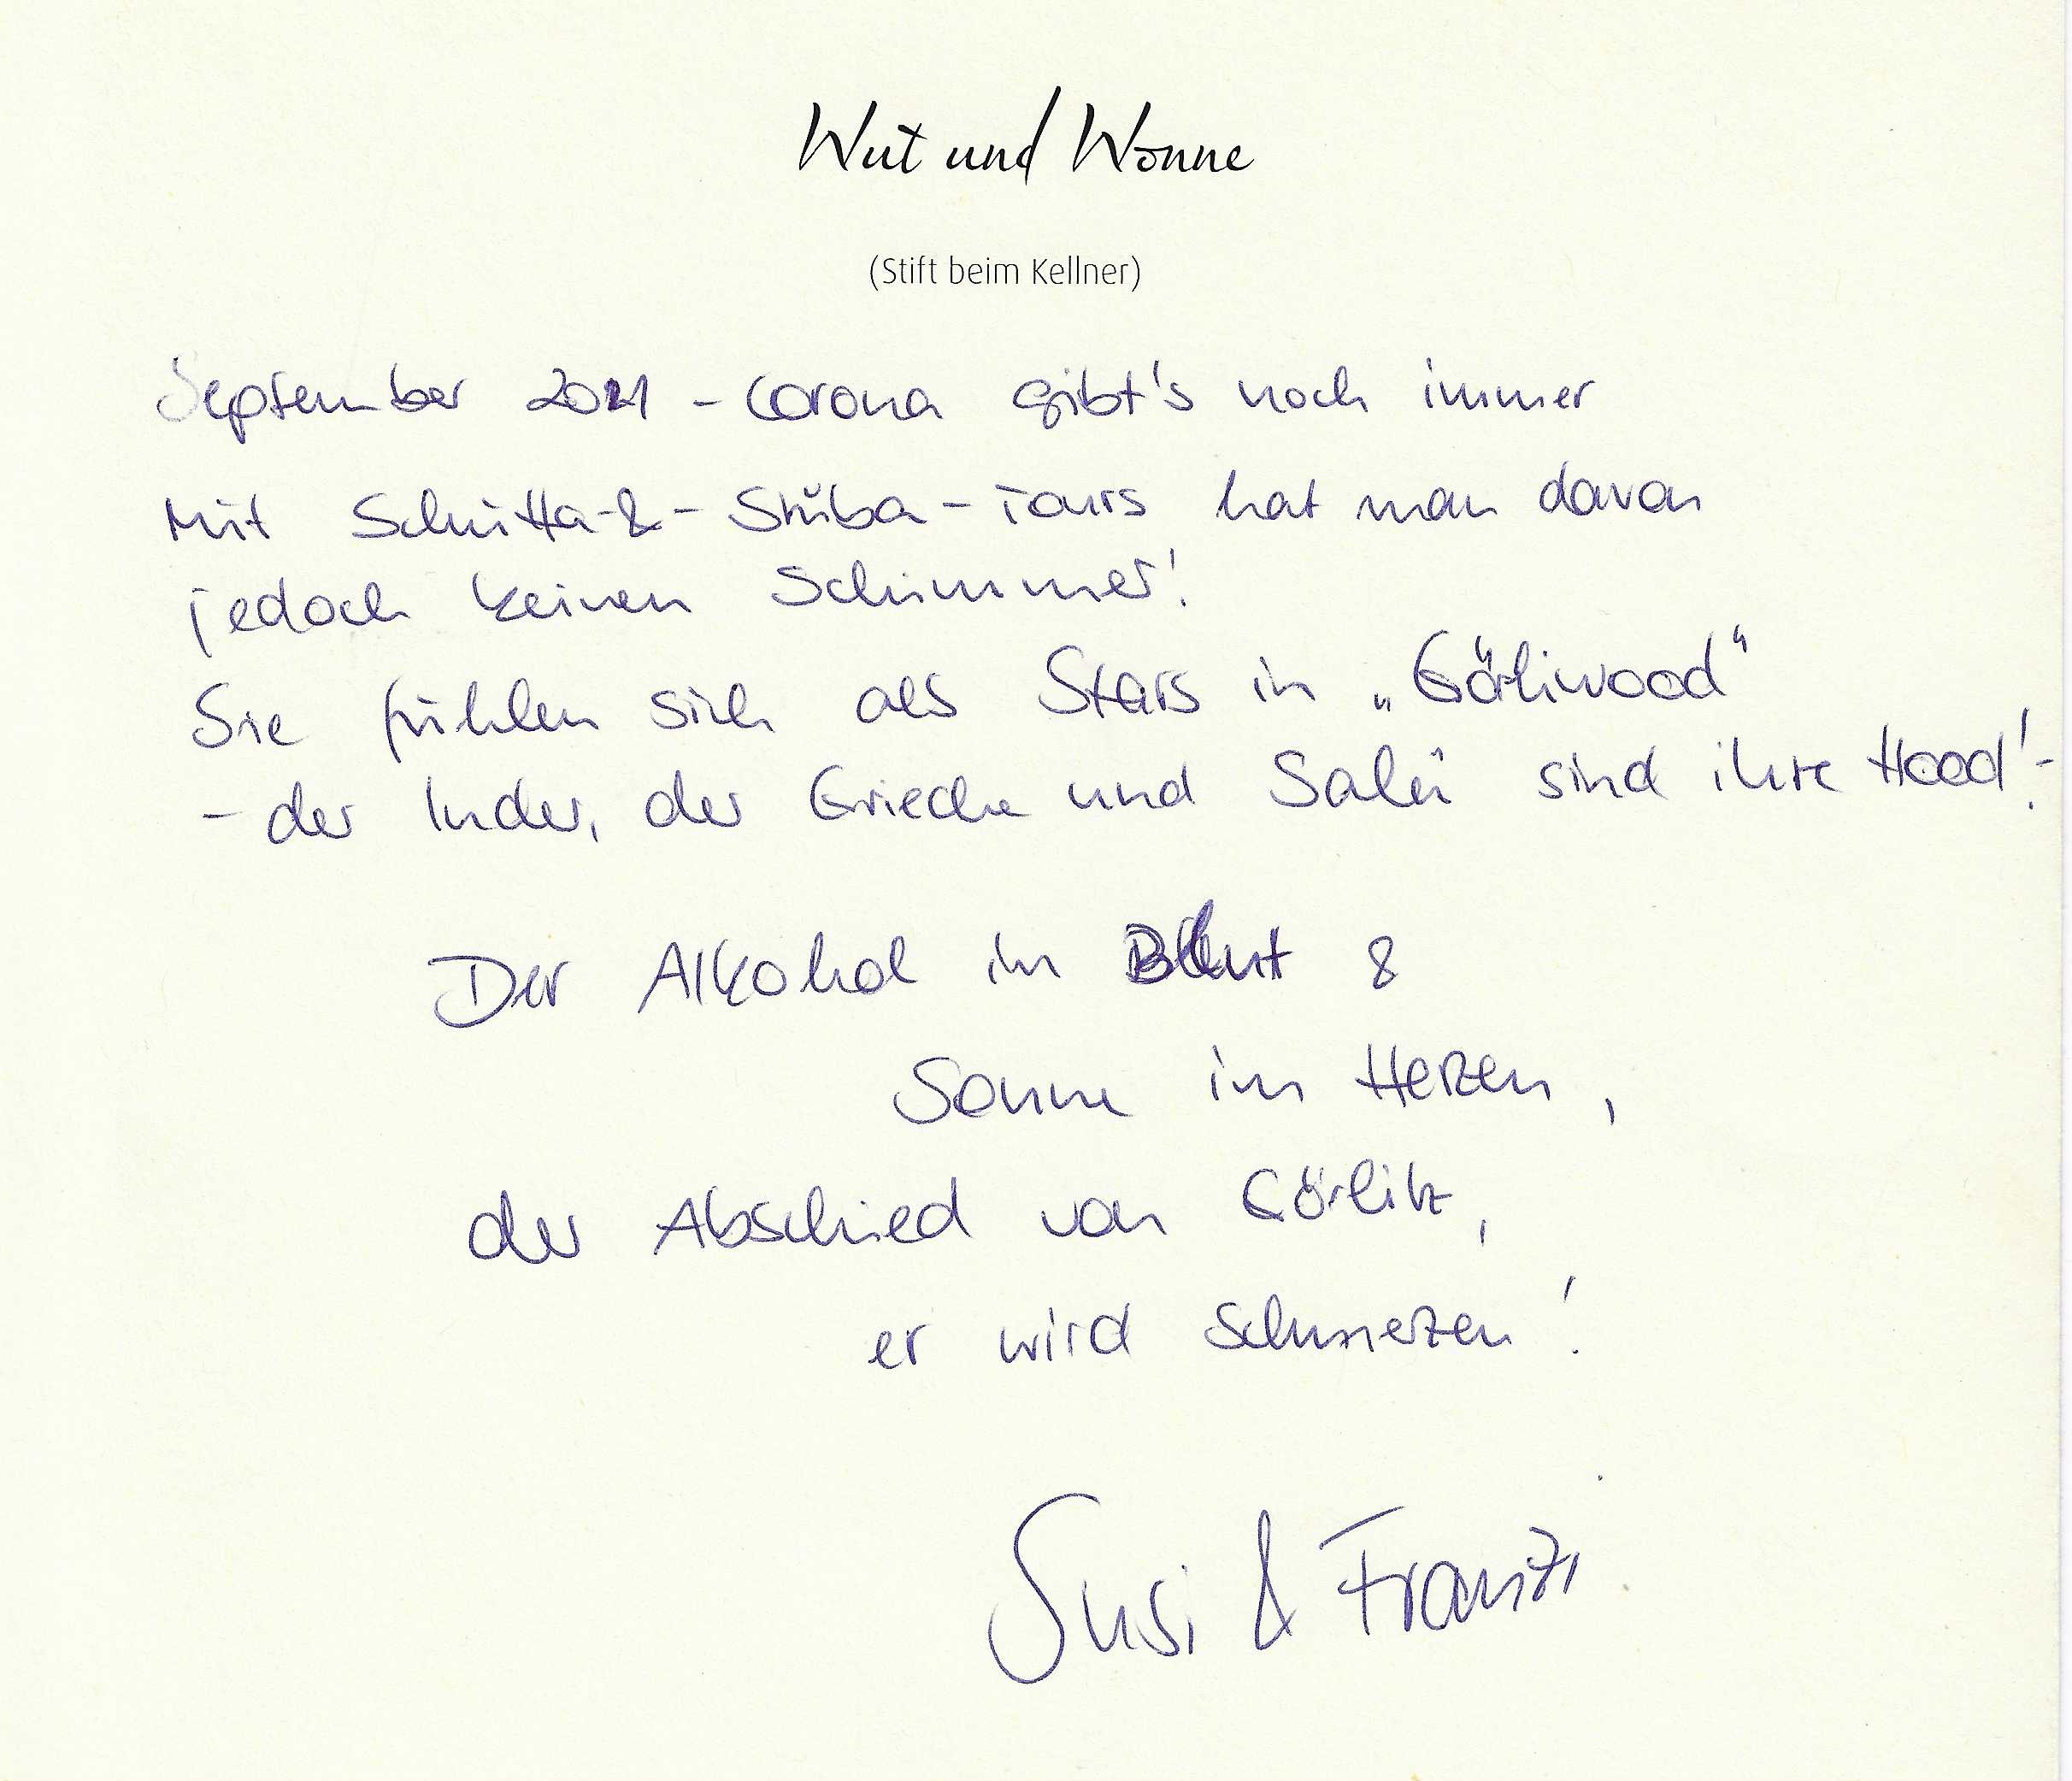 Wut und Wonne
(Stift beim Kellner)
September 2021 - Corona gibt's noch immer
Mit Schütta-&-Stüba-Tours hat man davon
jedoch keinen Schimmer!
Sie fühlen sich als Stars in „Görliwood"
- der Inder, der Grieche und Salü sind ihre Hood! -
Der Alkohol im Blut &
Sonne im Herzen,
der Abschied von Görlitz,
er wird schmerzen!
Susi & Franzi